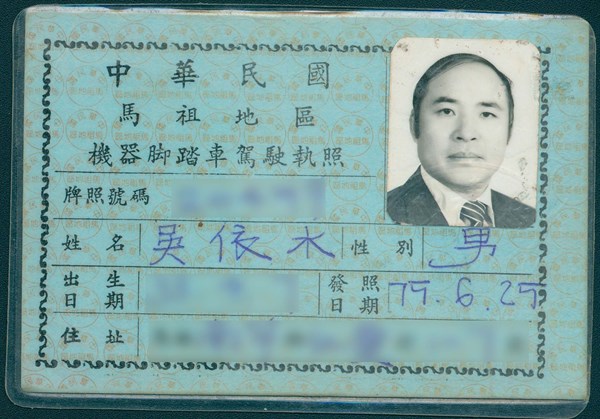 中華民國
馬祖地區
機器脚踏車駕駛執照
牌照號碼
姓名 吳依水 性別 男
出生日期 發照日期 79.6.29
住址